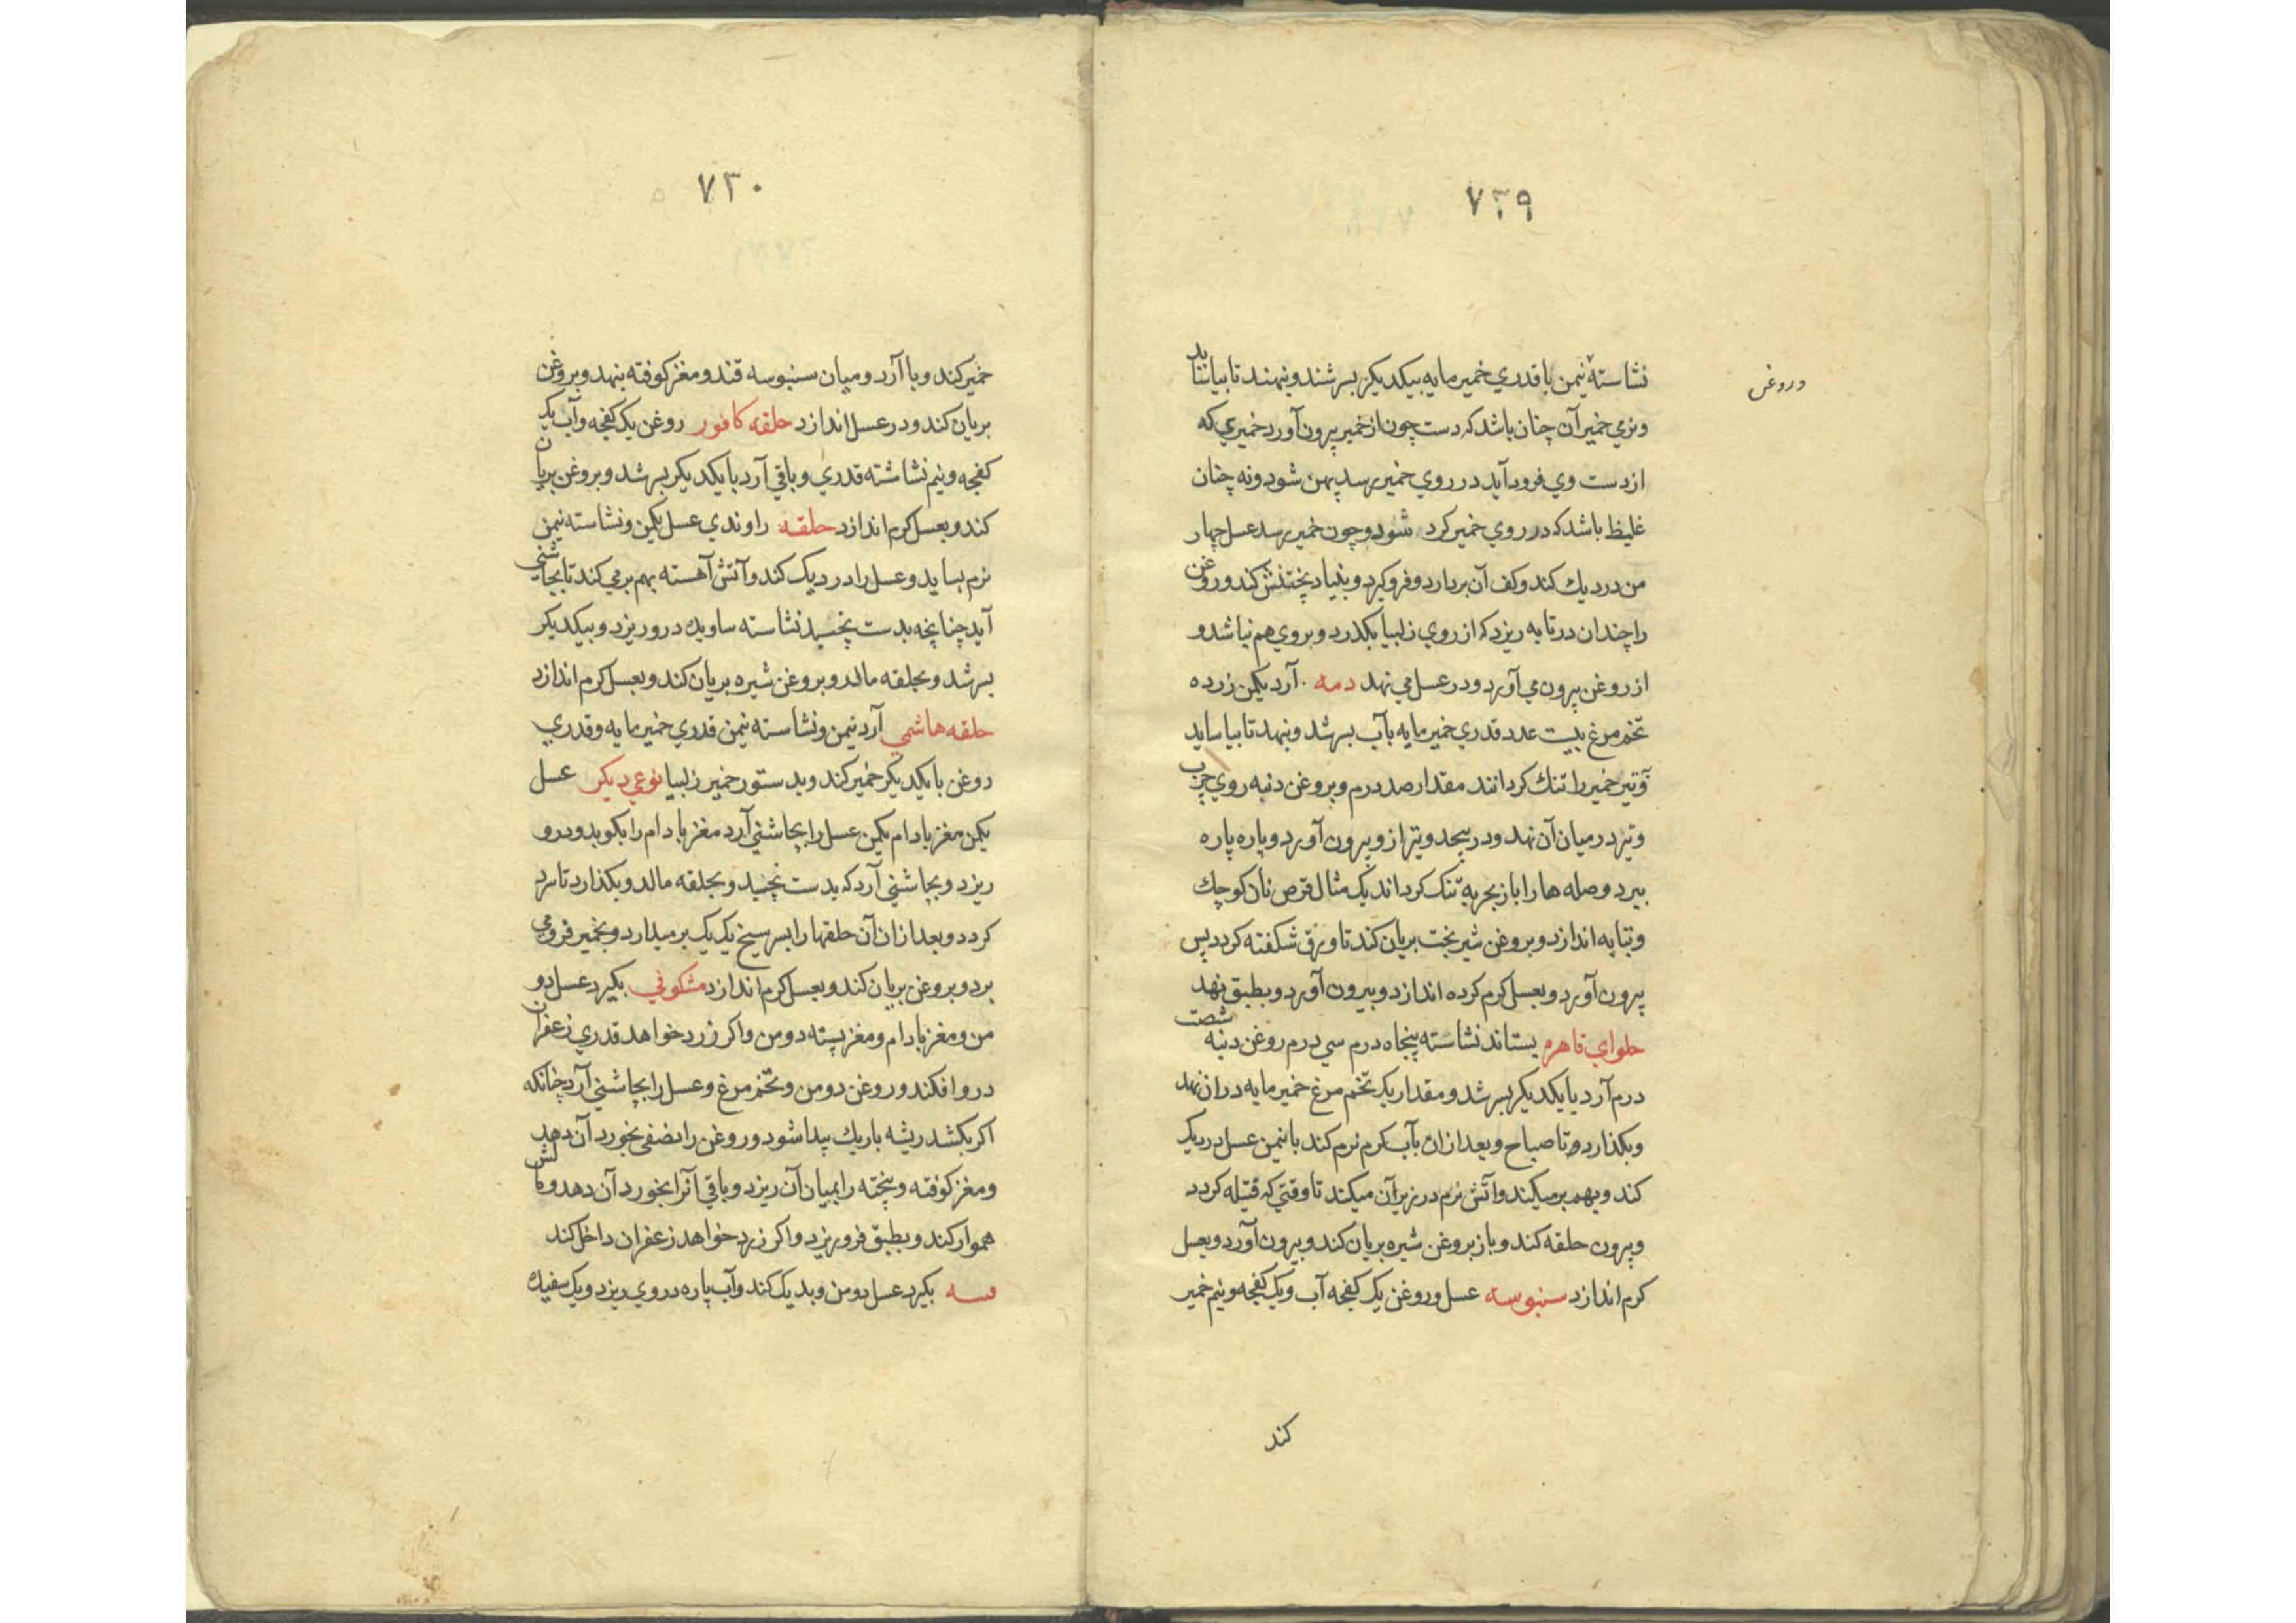 ۷۲۹
در روغن
نشاسته نیمن با قدری خمیر مایه بیکدیکر بسرشند و بنهند تا بیاساید
و نرمی خمیر آن چنان باشد که دست چون از خمیر بیرون آورد خمیری که
از دست وی فرود آید در روی خمیر برسد پهن شود و نه چنان
غلیظ باشد که در روی خمیر کرد شود و چون خمیر برسد عسل چهار
من در دیك کند و کف آن بردارد و فرو کیرد و بنیاد پختنش کند و روغن
را چندان در تابه ریزد که از روی زلبیا بکذرد و بروی هم نباشد و
از روغن بیرون می آورد و در عسل می نهد دمه آرد یکمن زرده
تخم مرغ بیست عدد قدری خمیر مایه بآب بسرشد و بنهد تا بیاساید
خمیر را تنك کردانند مقدار صد درم و بروغن دنبه روی چرب
و تیر در میان آن نهد و در پیچد و تیر از و بیرون آورد و پاره پاره
ببرد و وصله ها را باز بچربه تنک کرداند یک مثال قرص نان کوچك
و بتابه اندازد و بروغن شیربخت بریان کند تا ورق شکفته کردد پس
بیرون آورد و بعسل کرم کرده اندازد و بیرون آورد و بطبق نهد
حلوای قاهره بستاند نشاسته پنجاه درم سی درم روغن دنبه شصت
درم آرد با یکدیکر بسرشد و مقدار یکر تخم مرغ خمیر مایه دران نهد
و بکذارد تا صباح و بعد ازان بآب کرم نرم کند با نیمن عسل در دیک
کند و بهم بر میکند و آتش نرم در زیر آن میکند تا وقتی که فتیله کردد
و بیرون حلقه کند و باز بروغن شیره بریان کند و بیرون آورد و بعسل
کرم اندازد سنبوسه عسل و روغن یک کفچه آب و یک کفچه و نیم خمیر
کند
۷۳۰
خمیر کند و با آرد و میان سنبوسه قند و مغز کوفته بنهد و بروغن
بریان کند و در عسل اندازد حلقه کافور روغن یک کفچه و آب یک
کفچه و نیم نشاشته قدری و باقی آرد با یکدیکر بسرشد و بروغن بریان
کند و بعسل کرم اندازد حلقه راوندی عسل یکمن و نشاسته نیمن
نرم بساید و عسل را در دیک کند و آتش آهسته بهم بر می کند تا بچاشنی
آید چنانچه بدست بچسبد نشاسته ساویده درو ریزد و بیکدیکر
بسرشد و بحلقه مالد و بروغن شیره بریان کند و بعسل کرم اندازد
حلقه هاشمی آرد نیمن و نشاسته نیمن قدری خمیر مایه و قدری
روغن با یکدیکر خمیر کند و بدستور خمیر زلبیا نوعی دیکر عسل
یکمن مغز بادام یکمن عسل را بچاشنی آرد مغز بادام را بکوبد و درو
ریزد و بچاشنی آرد که بدست بچسبد و بحلقه مالد و بکذارد تا سرد
کردد و بعد ازان آن حلقها را بسر سیخ یک یک بر میدارد و بخمیر فرو می
برد و بروغن بریان کند و بعسل کرم اندازد مشکوفی بکیرد عسل دو
من و مغز بادام و مغز پسته دو من و اکر زرد خواهد قدری زعفران
درو افکند و روغن دو من و تخم مرغ و عسل را بچاشنی آرد چنانکه
اکر بکشد ریشه باریك پیدا شود و روغن را نصفی بخورد آن دهد
و مغز کوفته و پخته را بمیان آن ریزد و باقی آنرا بخورد آن دهد و مالش
هموار کند و بطبق فرو ریزد و اکر زرد خواهد زعفران داخل کند
بکیرد عسل دو من و بدیک کند و آب پاره در وی ریزد و یک سفیده